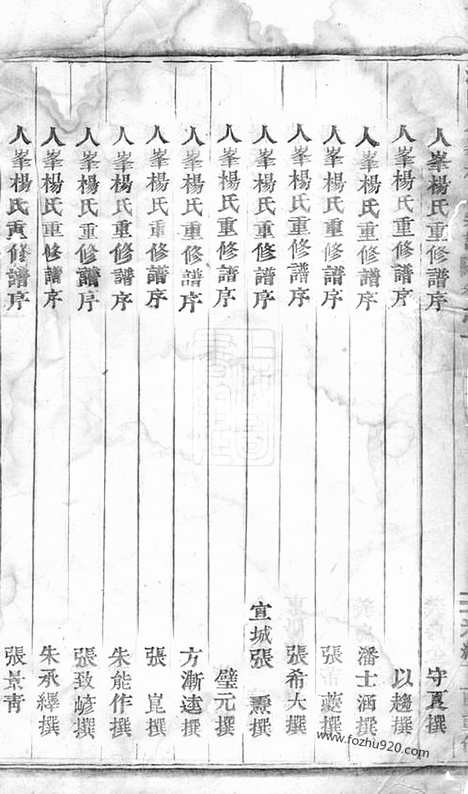 人峯楊氏重修譜序 守真撰
人峯楊氏重修譜序 以趨撰
人峯楊氏重修譜序 潘士涵撰
人峯楊氏重修譜序 張 撰
人峯楊氏重修譜序 張希大撰
人峯楊氏重修譜序 宣城張 撰
人峯楊氏重修譜序 璧元撰
人峯楊氏重修譜序 方漸逵撰
人峯楊氏重修譜序 張 崑撰
人峯楊氏重修譜序 朱能作撰
人峯楊氏重修譜序 張致嵃撰
人峯楊氏重修譜序 朱承繹撰
人峯楊氏重修譜序 張景青
www.fozhu920.com